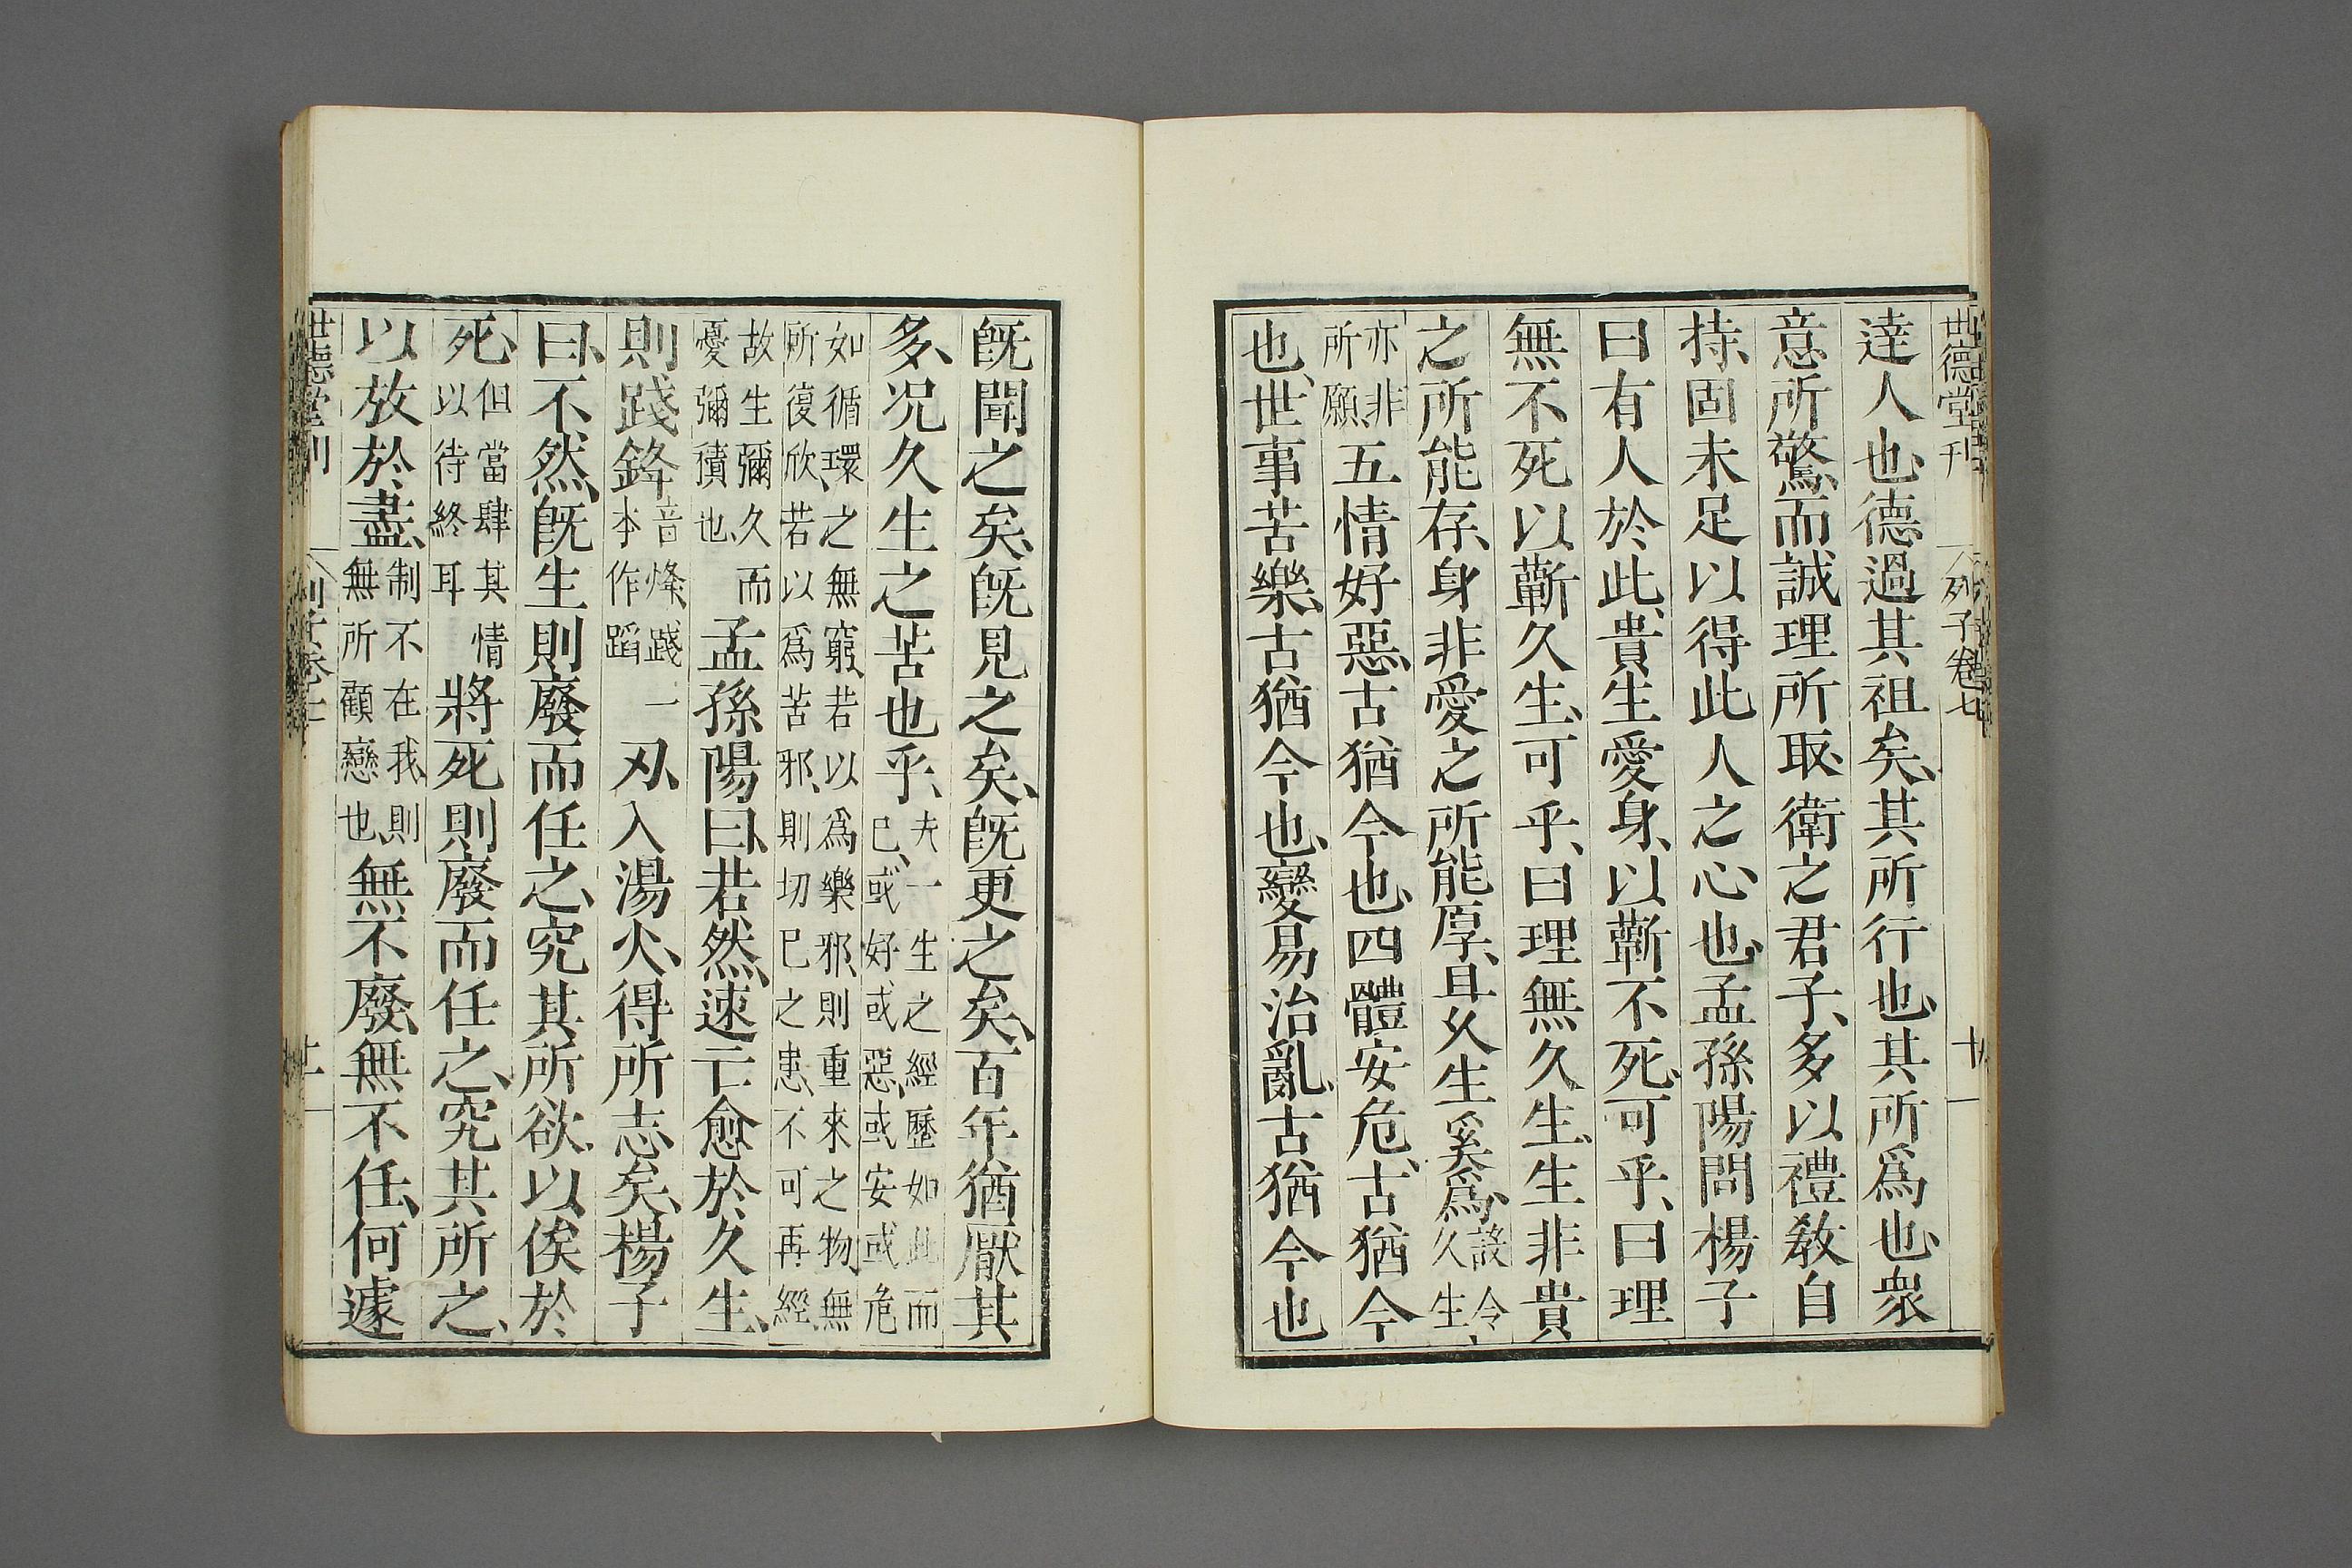 世德堂刊 列子卷七 十
達人也、德過其祖矣、其所行也、其所爲也、衆
意所驚、而誠理所取、衛之君子、多以禮教自
持、固未足以得此人之心也、孟孫陽問楊子
曰有人於此、貴生愛身、以蘄不死、可乎、曰理
無不死以蘄久生、可乎、曰理無久生、生非貴
之所能存、身非愛之所能厚、且久生奚爲、設令久生
亦非所願五情好惡、古猶今也、四體安危、古猶今
也、世事苦樂、古猶今也、變易治亂、古猶今也
旣聞之矣、旣見之矣、旣更之矣、百年猶厭其
多、况久生之苦也乎、夫一生之經歷如此而已、或好或惡、或安或危
如循環之無窮、若以爲樂邪、則重來之物、無所復欣、若以爲苦邪、則切已之患、不可再經、
故生彌久而憂彌積也、孟孫陽曰、若然、速亡愈於久生、
則踐鋒音烽、踐一本作蹈刃、入湯火、得所志矣、楊子
曰、不然、旣生則廢而任之、究其所欲、以俟於
死、但當肆其情以待終耳將死則廢而任之、究其所之、
以放於盡、制不在我、則無所顧戀也、無不廢、無不任、何遽
世德堂刊 列子卷七 十一